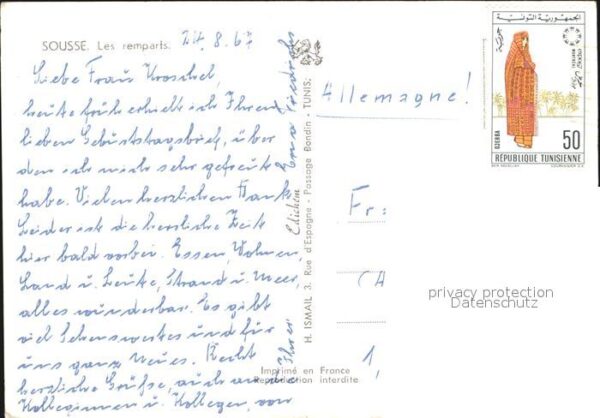 SOUSSE. Les remparts.
24.8.67
Liebe Frau Kroschel,
heute früh erhielt ich Ihren
lieben Gebŭrtstagsbrief, über
den ich mich sehr gefreut
habe. Vielen herzlichen Dank.
Leider ist die herrliche Zeit
hier bald vorbei. Essen, Wohnen,
Land u. Leute, Strand u. Meer,
alles wunderbar. Es gibt
viel Sehenswertes und für
uns ganz Neues. Recht
herzliche Grüße, auch an die
Kolleginnen u. Kollegen, von
Ihrer
H. ISMAIL 3, Rue d'Espagne - Passage Bondin - TUNIS.
Imprimé en France
Reproduction interdite
Allemagne!
Fr:
CH
1,
privacy protection
Datenschutz
الجمهورية التونسية
DJERBA
50
RÉPUBLIQUE TUNISIENNE